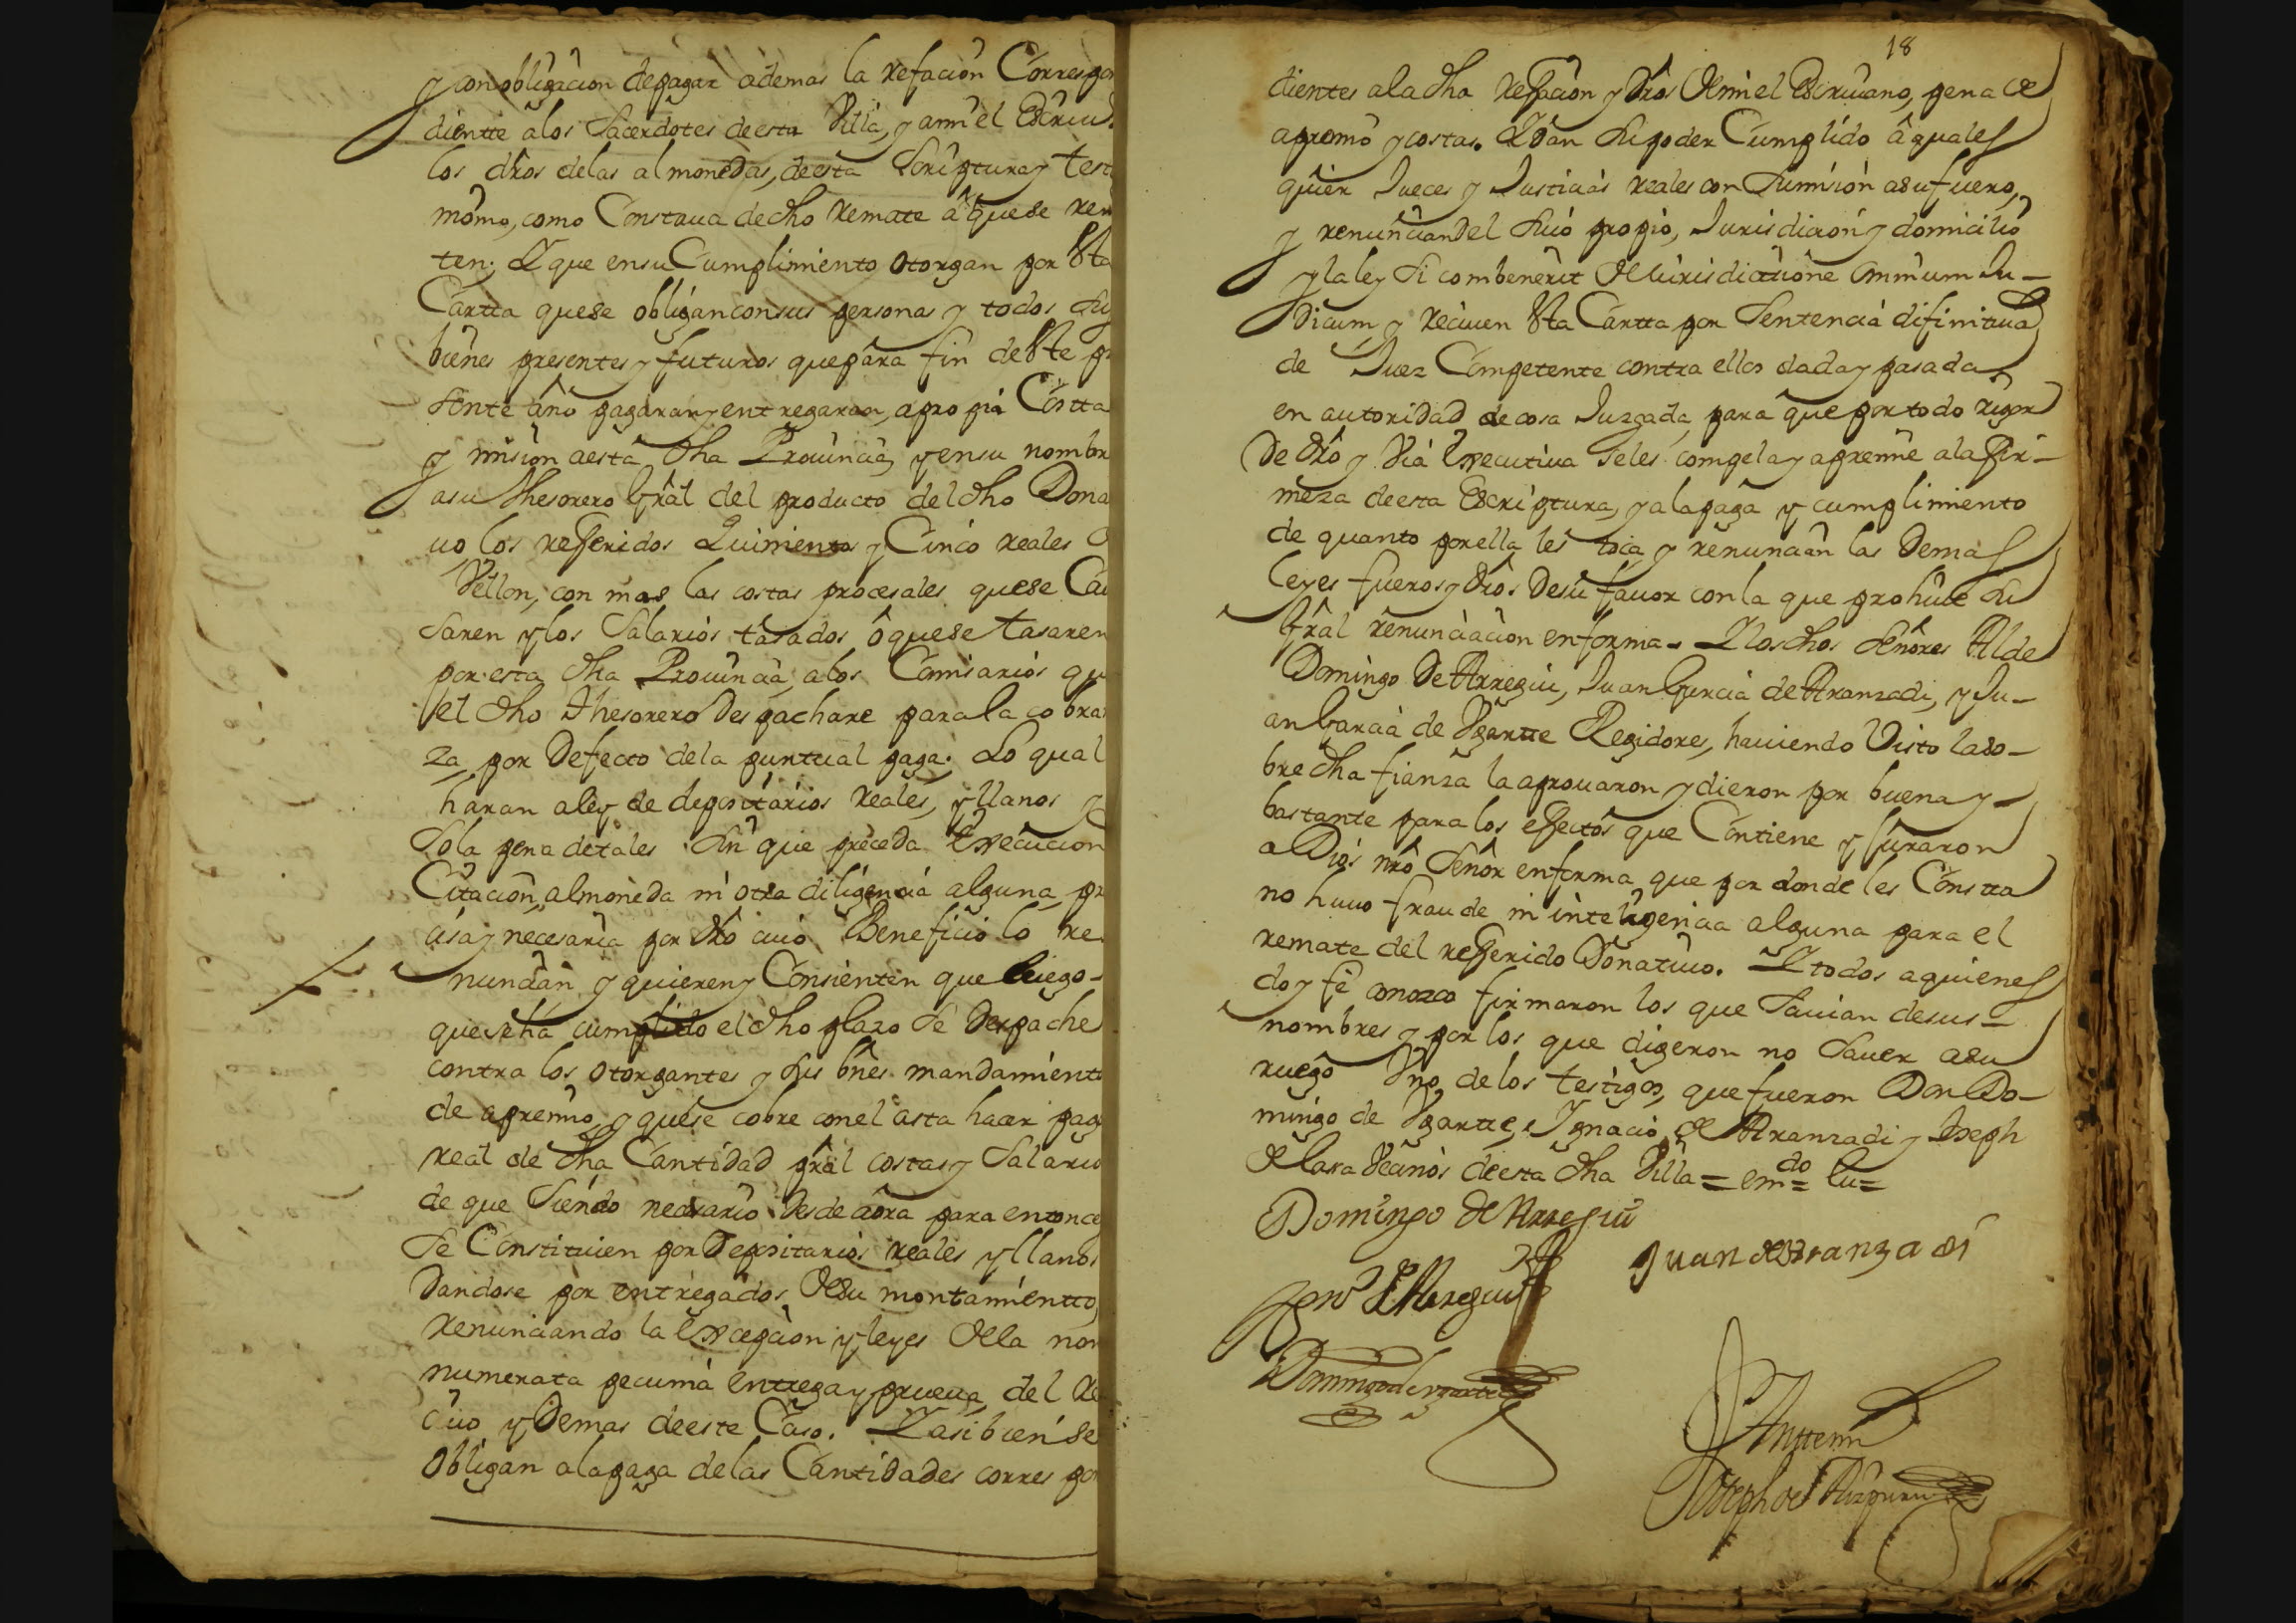 y con obligacion de pagar ademas la refacion Correspon
diente a los Sacerdotes de esta Villa, y a mi el Escriu
los dros de las almonedas, de esta Scriptura y testi
monio, como Constaua de dho remate a que se remi
ten; Y que en su Cumplimiento otorgan por esta
Cartta que se obligan con sus personas y todos sus
bienes presentes y futuros que para fin de este pre
sente año pagaran y entregaran, a propia Costta
y mision a esta dha Prouincia, y en su nombre
a su Thesorero Gral del producto del dho Dona
uo los refferidos Quinientos y Cinco reales
Vellon, con mas las costas procesales que se Cau
saren y los Salarios tasados ô que se tasaren
por esta dha Prouincia, a los Comisarios que
el dho Thesorero despachare para la cobran
za, por Defecto de la puntual paga. Lo qual
haran a ley de depositarios reales, y llanos y
so la pena de tales sin que preceda Execucion
Citacion, almoneda ni otra diligencia alguna, pre
cisa y necesaria por dro cuio Beneficio lo re
nuncian y quieren y Consienten que luego
que se ha cumplido el dho plazo se Despache
contra los otorgantes y sus bnes mandamiento
de apremio, y que se cobre con el asta hacer pago
real de dha Cantidad pral costas y Salarios
de que siendo necesario desde aora para entonces
se Constituien por Depositarios reales y llanos
dandose por entregados de su montamientto,
renunciando la Excepcion y leyes de la non
numerata pecunia entrega y prueua del Re
ciuo y Demas de este Caso. Y asi bien se
Obligan a la paga de las Cantidades corres pon
18
dientes a la dha Reffacion y dros de mi el Escriuano, pena de
apremio y costas. Y dan su poder Cumplido a quales
quier Jueces y Justicias reales con sumision a su fuero,
y renuncian del suio propio, Jurisdicion y domicilio
y la ley si combenerit de iurisdictione omnium Ju-
dicum, y reciuen esta Cartta por Sentencia difinitiua
de Juez Competente contra ellos dada y pasada
en autoridad de cosa Juzgada, para que por todo rigor
de dro y Via Executiua se les compela y apremie a la ffir-
meza de esta Escriptura, y a la paga y cumplimiento
de quanto por ella les toca y renuncian las Demas
leyes fueros y dros de su fauor con la que prohiue su
Gral renunciacion en forma. Y los dhos señores Alde
Domingo de Arregui, Juan Garcia de Aranzadi, y Ju-
an Garcia de Vgartte Regidores, hauiendo Visto la so-
bre dha fianza la aprouaron y dieron por buena y
bastante para los effectos que Contiene y juraron
a Dios nro Señor en forma que por donde les Constta
no huuo fraude ni inteligencia alguna para el
remate del refferido Donatiuo. Y todos a quienes
doy fe conozco firmaron los que Sauian de sus
nombres y por los que digeron no Sauer a su
ruego Vno de los testigos, que fueron Don Do-
mingo de Vgartte, Ygnacio de Aranzadi y Joseph
de lasa Vecinos de esta dha Villa = emdo = lu=
Domingo de Arregui
Juan de Aranzadi
de Arregui
Domingo de Vgartte
Antte mi
Joseph de Aizpuru